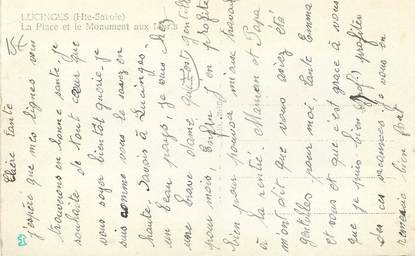 LUCINGES (Hte-Savoie)
La Place et le Monument aux Morts
Chère tante
J'espère que mes lignes vous
trouverons en bonne santé, je
souhaite de tout cœur que
vous soyer bientôt guérie, je
suis comme vous le savez en
haute-Savoie à Lucinges.
un beau pays, je suis chez
une brave dame qui gentille
pour moi. Enfin j'en profite
bien pour pouvoir mieux travailler
à la rentrée. Maman et Papa
m'ont dit que vous aviez été
gentilles pour moi, tante Emma
et vous et que c'est grâce à vous
que je puis bien profiter
de ces vacances je vous en
remercie bien fort